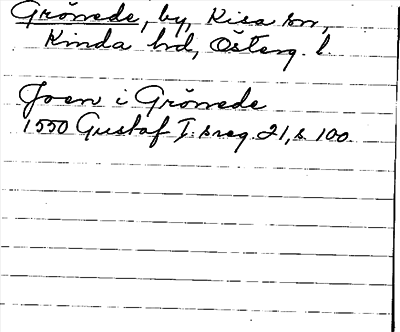 Grönede, by, Kisa sn,
Kinda hd, Österg. l.
Joen i Grönede
1550 Gustaf I:s reg. 21, s. 100.